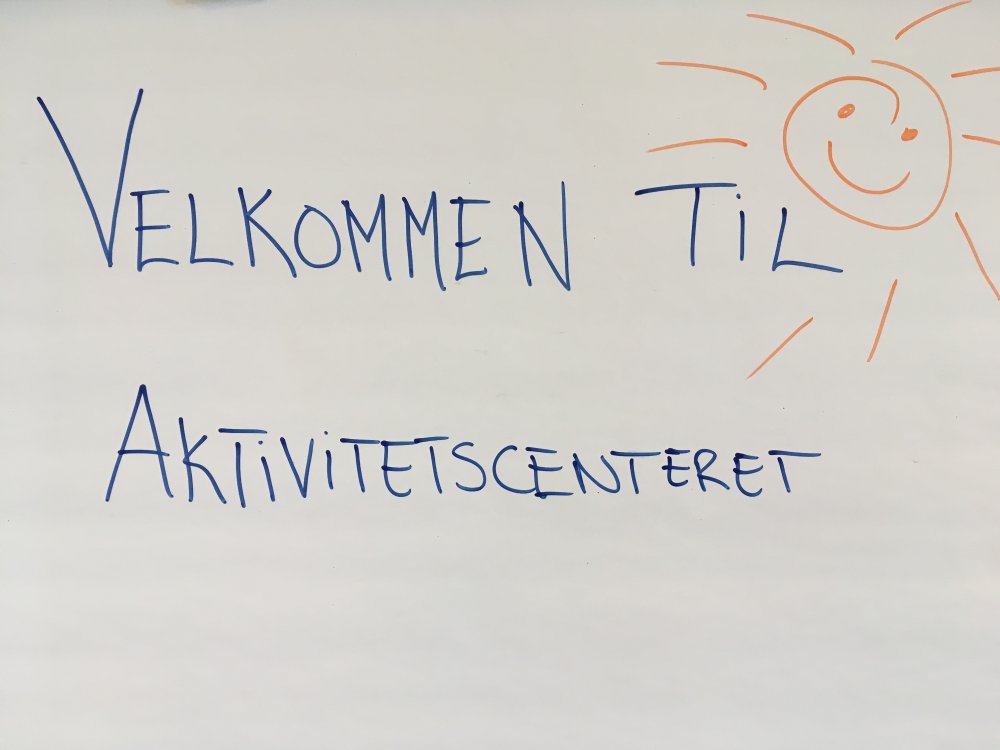 VELKOMMEN TiL
AKTiViTETSCENTERET